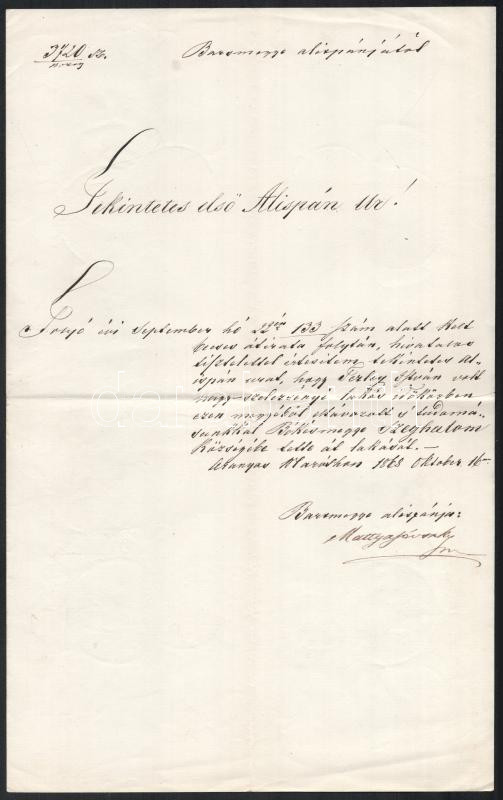 3720 sz.
Barsmegye alispánjától
Tekintetes első Alispán Ur!
Folyó évi September hó 22én 133 szám alatt kelt
becses átirata folytán, hivatalos
tisztelettel értesitem tekintetes Al-
ispán urat, hogy Terley István volt
nagy szelezsényi lakos időközben
ezen megyéből eltávozott s tudomá-
sunkkal Békésmegye Szeghalom
községébe tette át lakását. –
Aranyos Maróthon 1868 Oktober 16
Barsmegye alispánja: